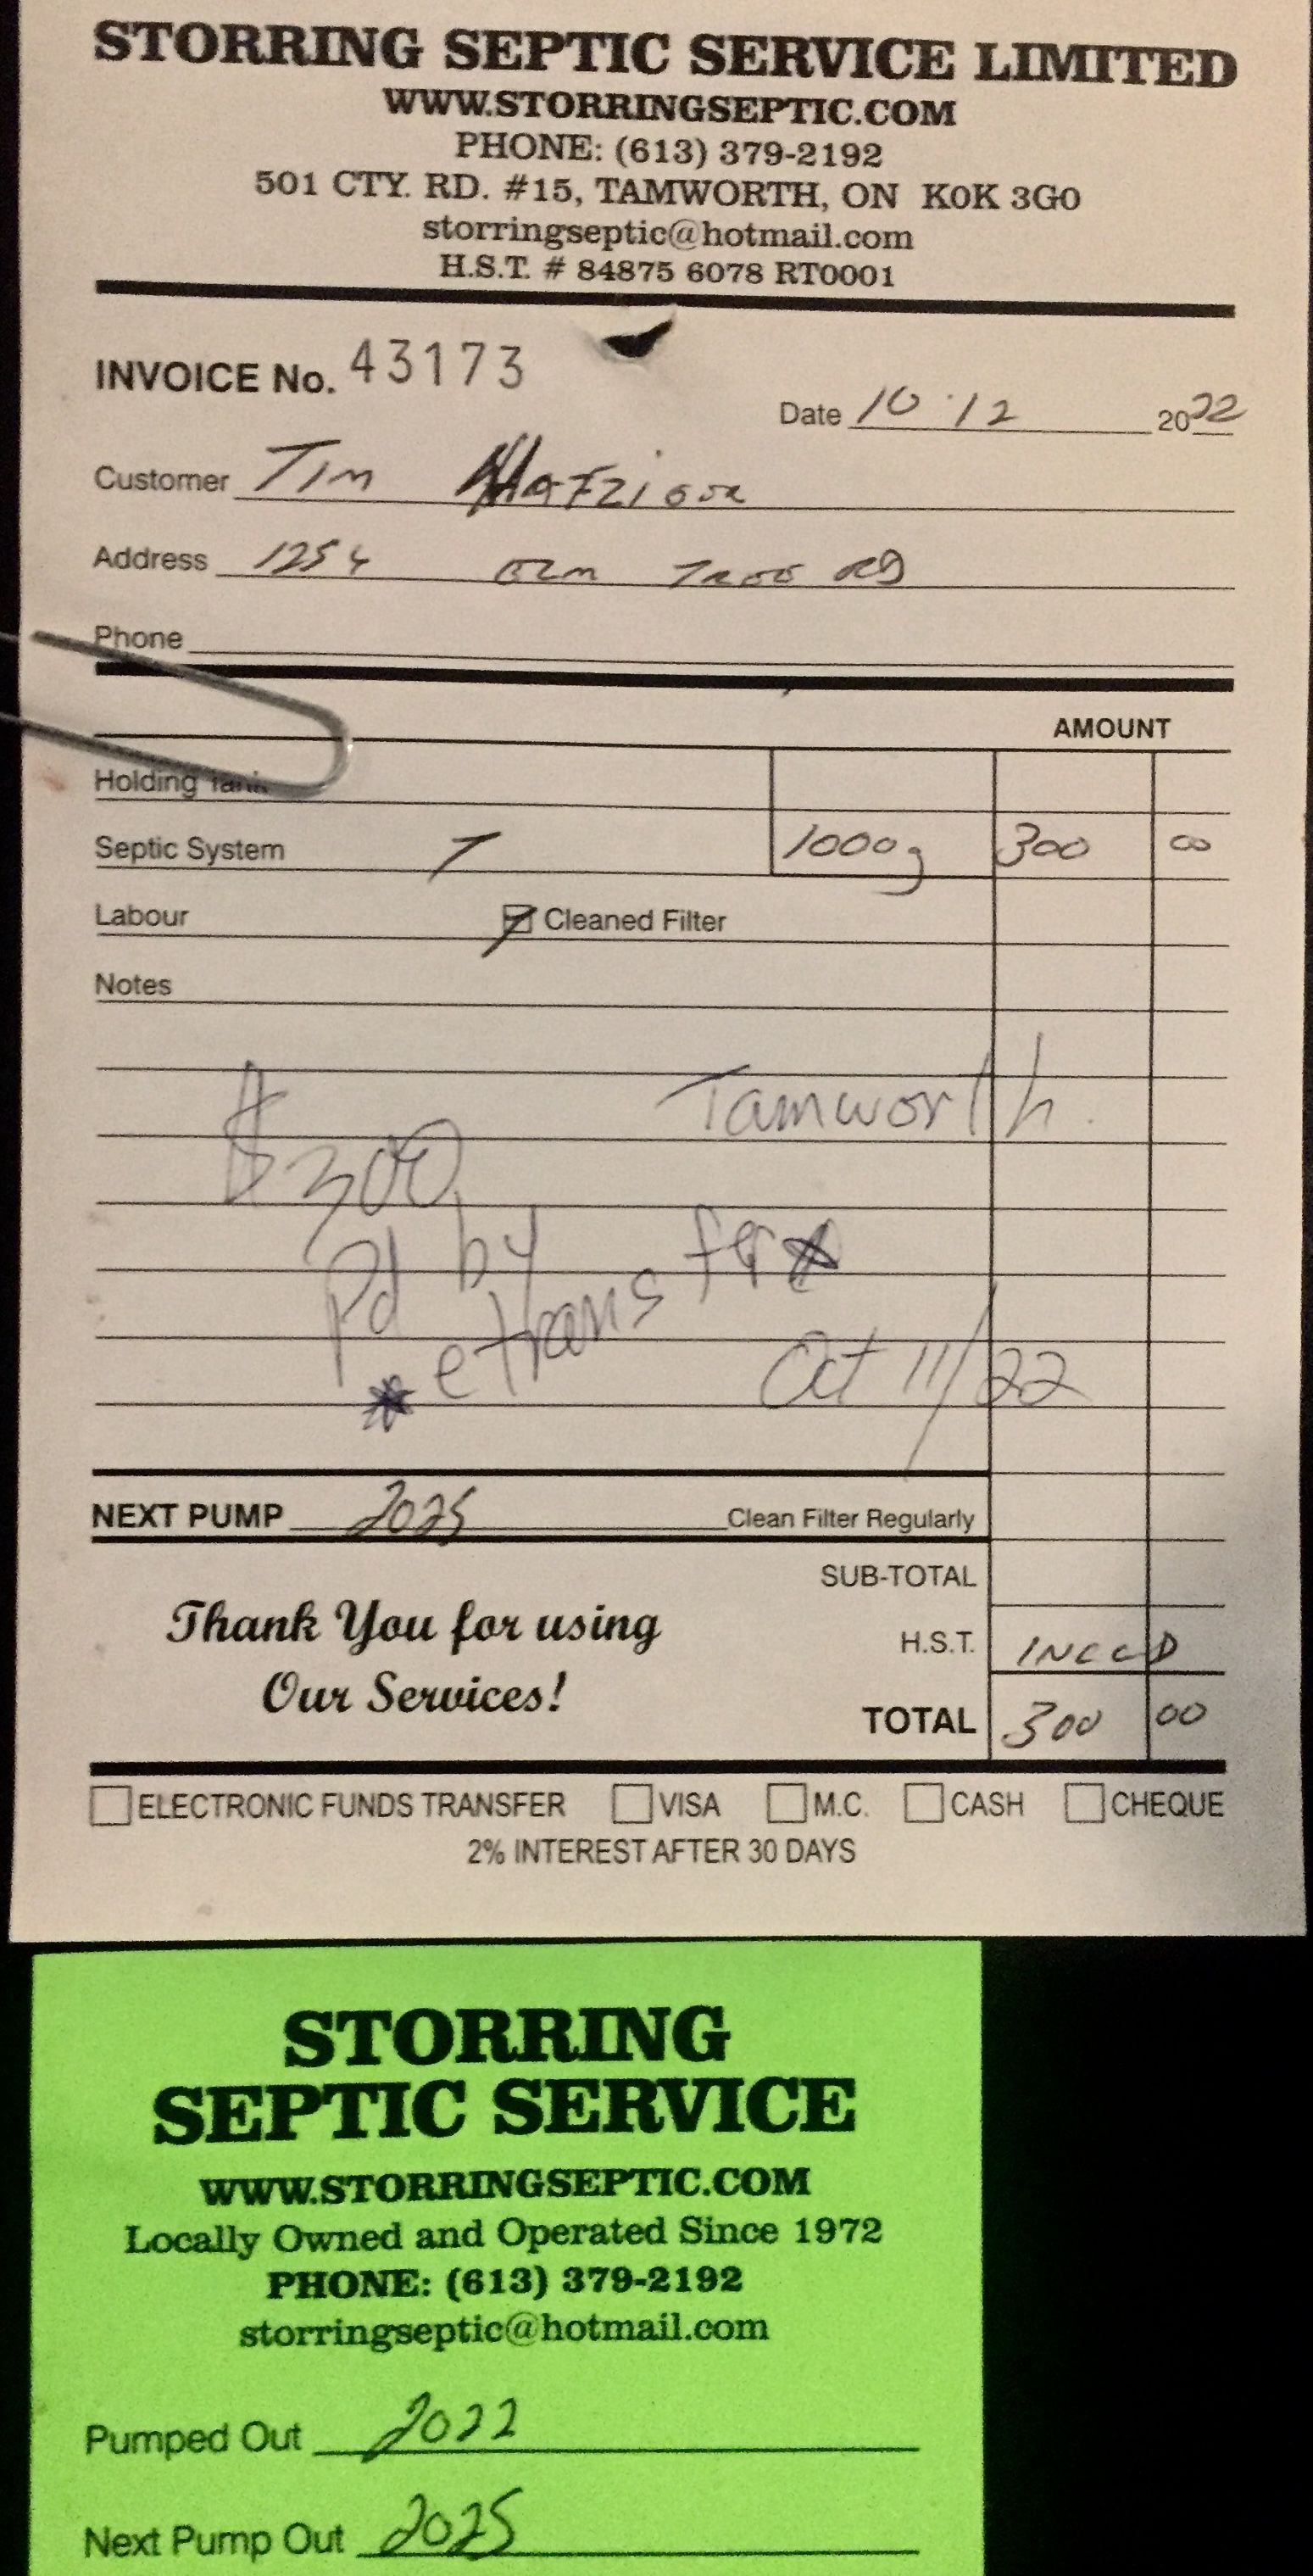 STORRING SEPTIC SERVICE LIMITED
WWW.STORRINGSEPTIC.COM
PHONE: (613) 379-2192
501 CTY. RD. #15, TAMWORTH, ON K0K 3G0
storringseptic@hotmail.com
H.S.T. # 84875 6078 RT0001
INVOICE No. 43173
Date 10 12 2022
Customer Tim
Address 1254 ELM TREE RD
Phone
AMOUNT
Holding Tank
Septic System 1000g 300 00
Labour Cleaned Filter
Notes
Tamworth.
$300
Pd by
* etransfer *
Oct 11/22
NEXT PUMP 2025 Clean Filter Regularly
SUB-TOTAL
Thank You for using
Our Services!
H.S.T. INCLD
TOTAL 300 00
ELECTRONIC FUNDS TRANSFER VISA M.C. CASH CHEQUE
2% INTEREST AFTER 30 DAYS
STORRING
SEPTIC SERVICE
WWW.STORRINGSEPTIC.COM
Locally Owned and Operated Since 1972
PHONE: (613) 379-2192
storringseptic@hotmail.com
Pumped Out 2022
Next Pump Out 2025